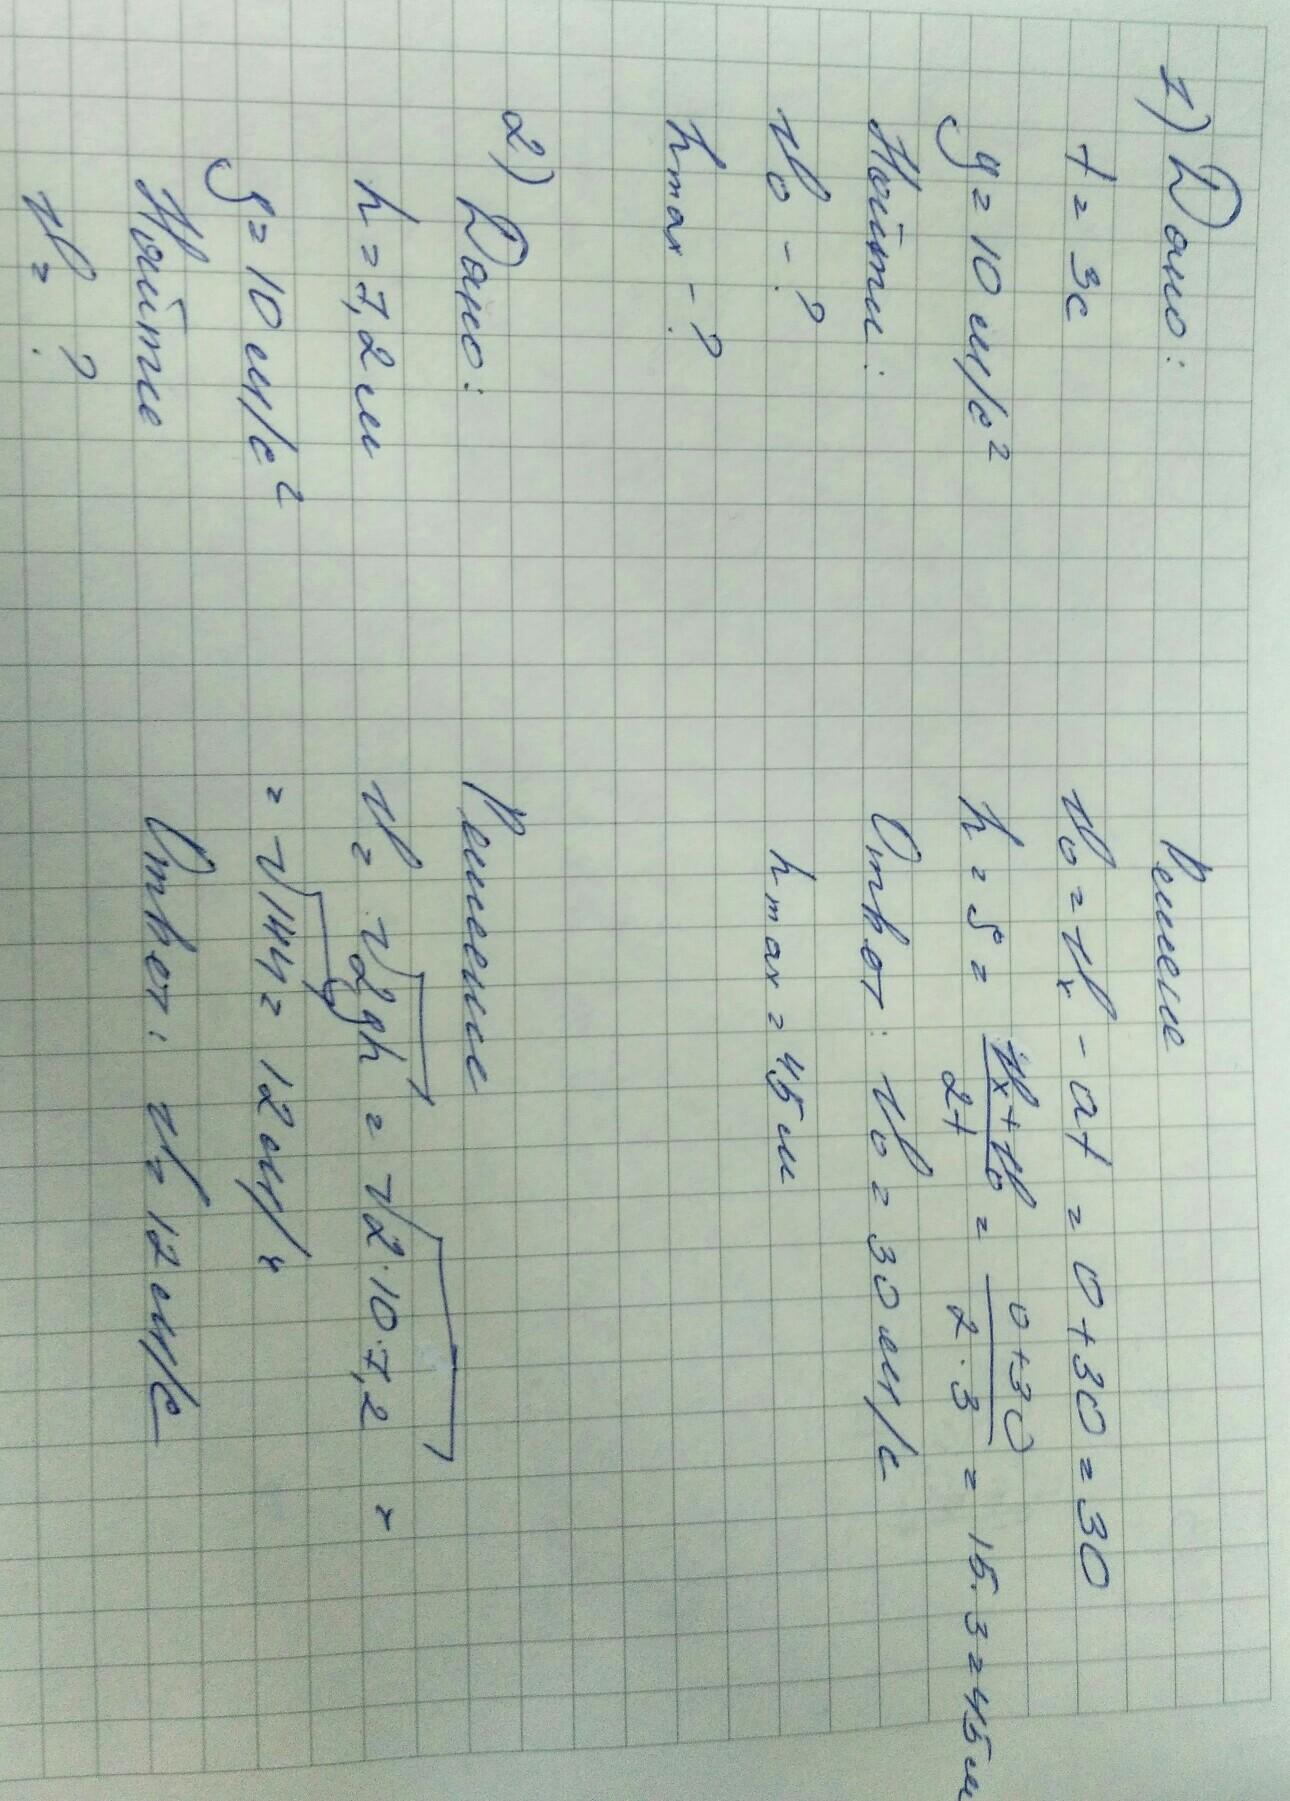 1) Дано:
t = 3c
g = 10 м/с²
Найти:
v₀ - ?
hmax - ?
Решение
v₀ = vₓ - at = 0 + 30 = 30
h = S = vₓ + v₀ / 2t = 0 + 30 / 2 · 3 = 15 · 3 = 45 м
Ответ: v₀ = 30 м/с
hmax = 45 м
2) Дано:
h = 7,2 м
g = 10 м/с²
Найти
v = ?
Решение
v = √2gh = √2·10·7,2 =
= √144 = 12 м/с
Ответ: v = 12 м/с